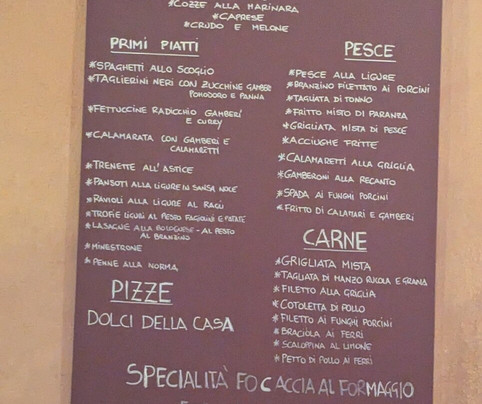 *COZZE ALLA MARINARA
*CAPRESE
*CRUDO E MELONE
PRIMI PIATTI
*SPAGHETTI ALLO SCOGLIO
*TAGLIERINI NERI CON ZUCCHINE GAMBERI
POMODORO E PANNA
*FETTUCCINE RADICCHIO GAMBERI
E CURRY
*CALAMARATA CON GAMBERI E
CALAMARETTI
*TRENETTE ALL'ASTICE
*PANSOTI ALLA LIGURE IN SALSA NOCE
*RAVIOLI ALLA LIGURE AL RAGÙ
*TROFIE LIGURI AL PESTO FAGIOLINI E PATATE
*LASAGNE ALLA BOLOGNESE - AL PESTO
AL BRANZINO
*MINESTRONE
*PENNE ALLA NORMA
PIZZE
DOLCI DELLA CASA
PESCE
*PESCE ALLA LIGURE
*BRANZINO FILETTATO AI PORCINI
*TAGLIATA DI TONNO
*FRITTO MISTO DI PARANZA
*GRIGLIATA MISTA DI PESCE
*ACCIUGHE FRITTE
*CALAMARETTI ALLA GRIGLIA
*GAMBERONI ALLA RECANTO
*SPADA AI FUNGHI PORCINI
*FRITTO DI CALAMARI E GAMBERI
CARNE
*GRIGLIATA MISTA
*TAGLIATA DI MANZO RUCOLA E GRANA
*FILETTO ALLA GRIGLIA
*COTOLETTA DI POLLO
*FILETTO AI FUNGHI PORCINI
*BRACIOLA AI FERRI
*SCALOPPINA AL LIMONE
*PETTO DI POLLO AI FERRI
SPECIALITÀ FOCACCIA AL FORMAGGIO